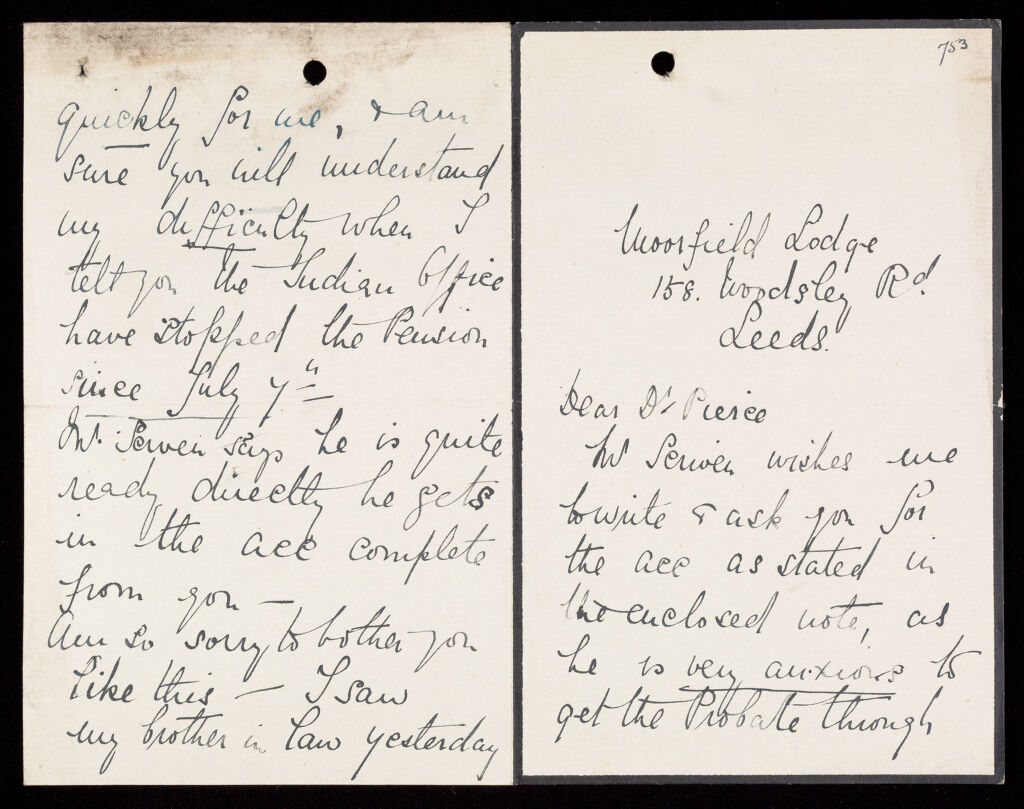 753
Moorfield Lodge
158. Woodsley Rd.
Leeds.
Dear Dr Pierce
Mr Scriven wishes me
to write & ask you for
the acc as stated in
the enclosed note, as
he is very anxious to
get the Probate through
quickly for me, & am
sure you will understand
my difficulty when I
tell you the Indian Office
have stopped the Pension
since July 7th
Mr. Scriven says he is quite
ready directly he gets
in the acc complete
from you —
Am so sorry to bother you
like this — I saw
my brother in law yesterday